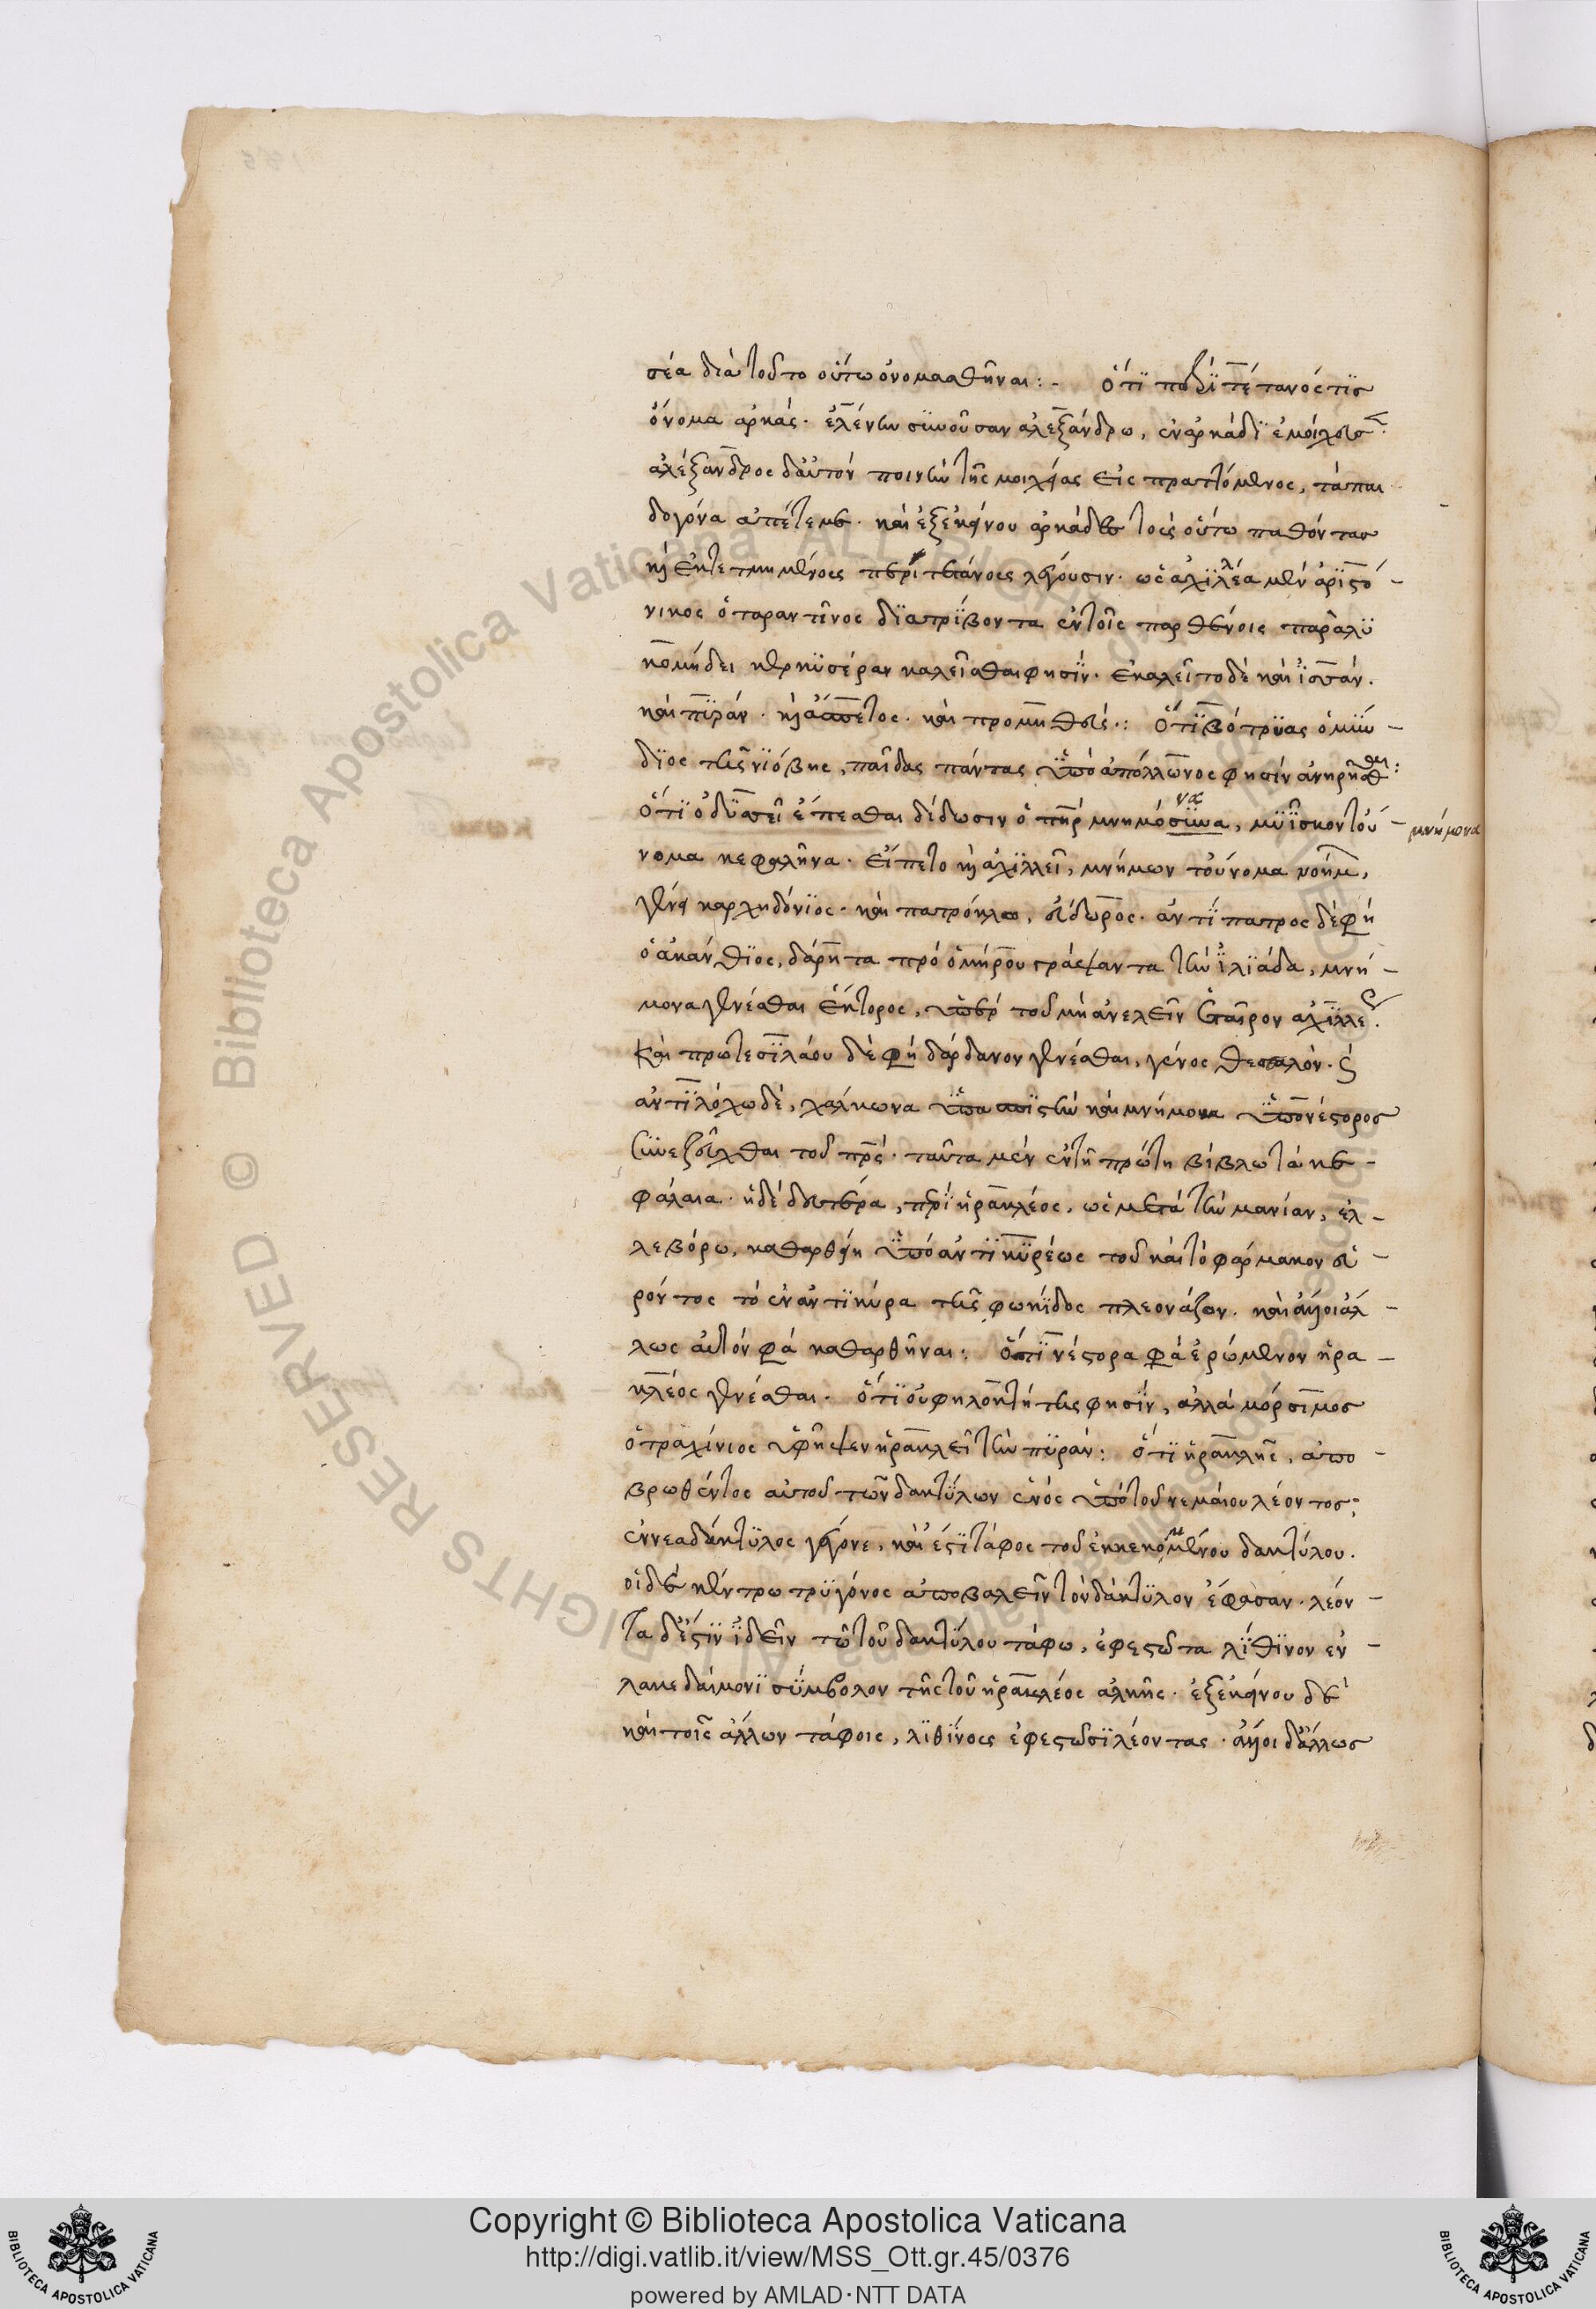 σέα διὰ τοῦτο οὕτω ὀνομασθῆναι :- ὅτι περιτέτανός τις
ὄνομα ἀρκάς. ἑλένην συνοῦσαν ἀλεξάνδρω, ἐν ἀρκάδι ἐμοίχευσ.
ἀλέξανδρος δ' αὐτὸν ποινὴν τῆς μοιχείας εἰσπραττόμενος, τὰ παι
δογόνα ἀπέτεμε. καὶ ἐξ ἐκείνου ἀρκάδες τοὺς οὕτω παθόντας
καὶ ἐκτετμημένους περιτετάνους λέγουσιν. ὡς ἀχιλλέα μὲν ἀριστό-
νικος ὁ ταραντῖνος διατρίβοντα ἐν τοῖς παρθένοις παρὰ λυ
κομήδει κερκυσέραν καλεῖσθαι φησίν. ἐκαλεῖτο δὲ καὶ ἴσσαν.
καὶ πύραν. καὶ ἄσπετος. καὶ προμηθεύς.: ὅτι βότρυας ὁ μύν-
διος τῆς νιόβης, παῖδας πάντας ὑπὸ ἀπόλλωνος φησὶν ἀναιρῆσθαι:
ὅτι ὀδυσσεῖ ἕπεσθαι δίδωσιν ὁ πηρ μνημόσυνα, μυΐσκον τού-
να
μνήμονα
νομα κεφαλῆνα. εἵπετο καὶ ἀχιλλεῖ, μνήμων τοὔνομα νοήμ,
γένει καρχηδόνιος. καὶ πατρόκλω, εὔδωρος. ἀντίπατρος δέ φη
ὁ ἀκάνθιος, δάρητα πρὸ ὁμήρου γράψαντα τὴν ἰλιάδα, μνή-
μονα γενέσθαι ἕκτορος, ὑπὲρ τοῦ μὴ ἀνελεῖν ἑταῖρον ἀχιλλέ.
καὶ πρωτεσιλάου δέ φη δάρδανον γενέσθαι, γένος θεσσαλόν. καὶ
ἀντιλόχω δέ, χάλκωνα ὑπασπιστὴν καὶ μνήμονα ὑπὸ νέστορος
συνεζεῦχθαι τοῦ πρς. ταῦτα μὲν ἐν τῇ πρώτη βίβλω τὰ κε-
φάλαια. ἡ δὲ δευτέρα, περὶ ἡρακλέος, ὡς μετὰ τὴν μανίαν, ἐλ-
λεβόρω, καθαρθείη ὑπὸ ἀντικυρέως τοῦ καὶ τὸ φάρμακον εὑ-
ρόντος τὸ ἐν ἀντικύρα τῆς φωκίδος πλεονάζον. καὶ ἄλλοι ἀλ-
λως αὐτόν φα καθαρθῆναι: ὅτι νέστορα φα ἐρώμενον ἡρα-
κλέος γενέσθαι. ὅτι οὐ φιλοκτήτης φησίν, ἀλλὰ μόρσιμος
ὁ τραχίνιος ὑφῆψεν ἡρακλεῖ τὴν πυράν: ὅτι ἡρακλῆς, ἀπο-
βρωθέντος αὐτοῦ τῶν δακτύλων ἑνός ὑπὸ τοῦ νεμαίου λέοντος;
ἐννεαδάκτυλος γέγονε, καὶ ἔστι τάφος τοῦ ἐκκεκομμένου δακτύλου.
οἱ δὲ κέντρω τρυγόνος ἀποβαλεῖν τὸν δάκτυλον ἔφασαν. λέον-
τα δ' ἔστιν ἰδεῖν τῶ τοῦ δακτύλου τάφω, ἐφεστῶτα λίθινον ἐν-
λακεδαίμονι σύμβολον τῆς τοῦ ἡρακλέος ἀλκῆς. ἐξ ἐκείνου δὲ
καὶ τοῖς ἄλλων τάφοις, λιθίνους ἐφεστῶσι λέοντας. ἄλλοι δ' ἄλλως
Copyright © Biblioteca Apostolica Vaticana
http://digi.vatlib.it/view/MSS_Ott.gr.45/0376
powered by AMLAD·NTT DATA